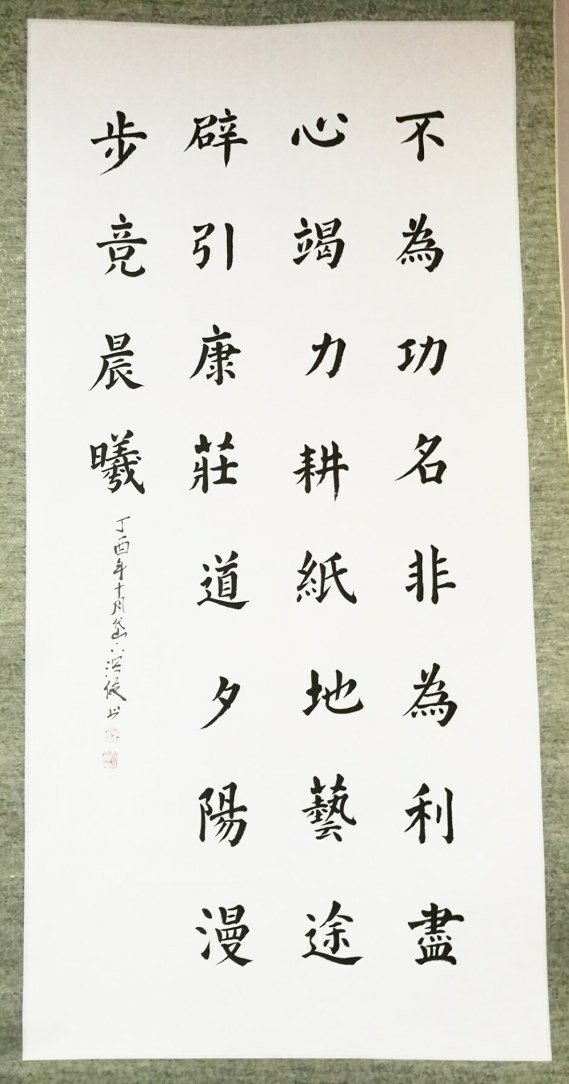 不為功名非為利盡
心竭力耕紙地藝途
辟引康莊道夕陽漫
步竞晨曦
丁酉年十月